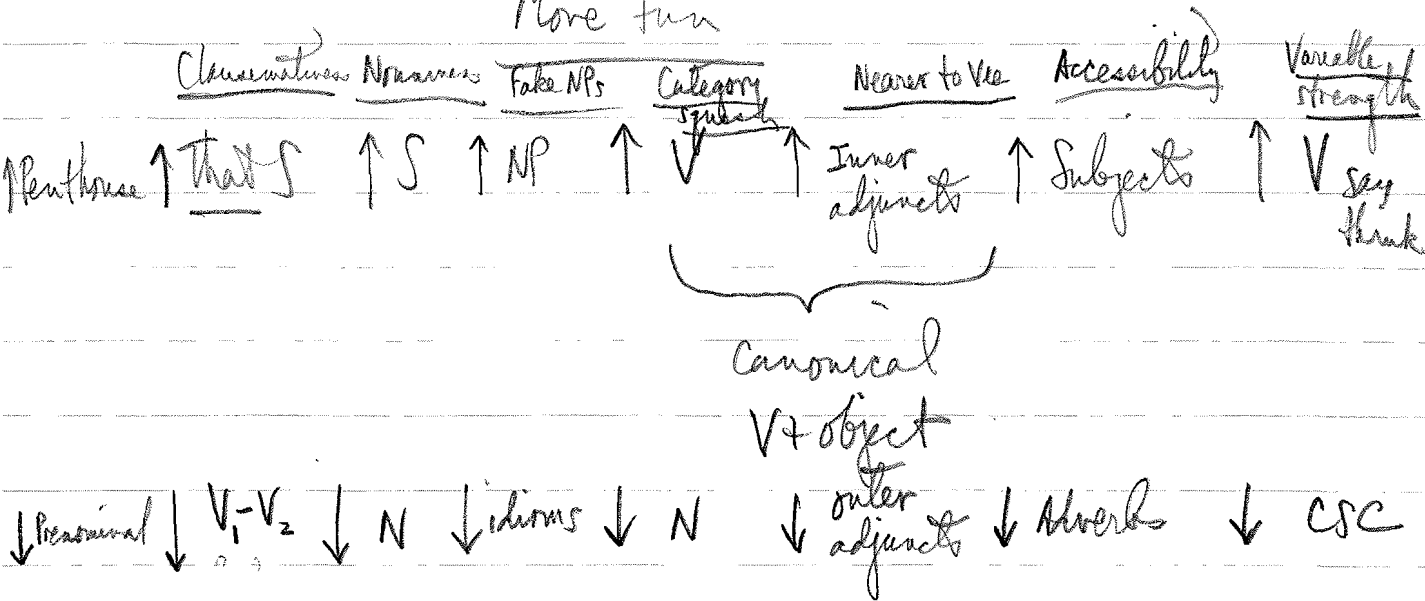 More fun
Clausematiness Nouniness Fake NPs Category squash Nearer to Vee Accessibility Variable strength
↑ Penthouse ↑ that S ↑ S ↑ NP ↑ V ↑ Inner adjuncts ↑ Subjects ↑ V say think
Canonical
V + object
↓ Prenominal ↓ V₁-V₂ ↓ N ↓ idioms ↓ N ↓ outer adjuncts ↓ Adverbs ↓ CSC